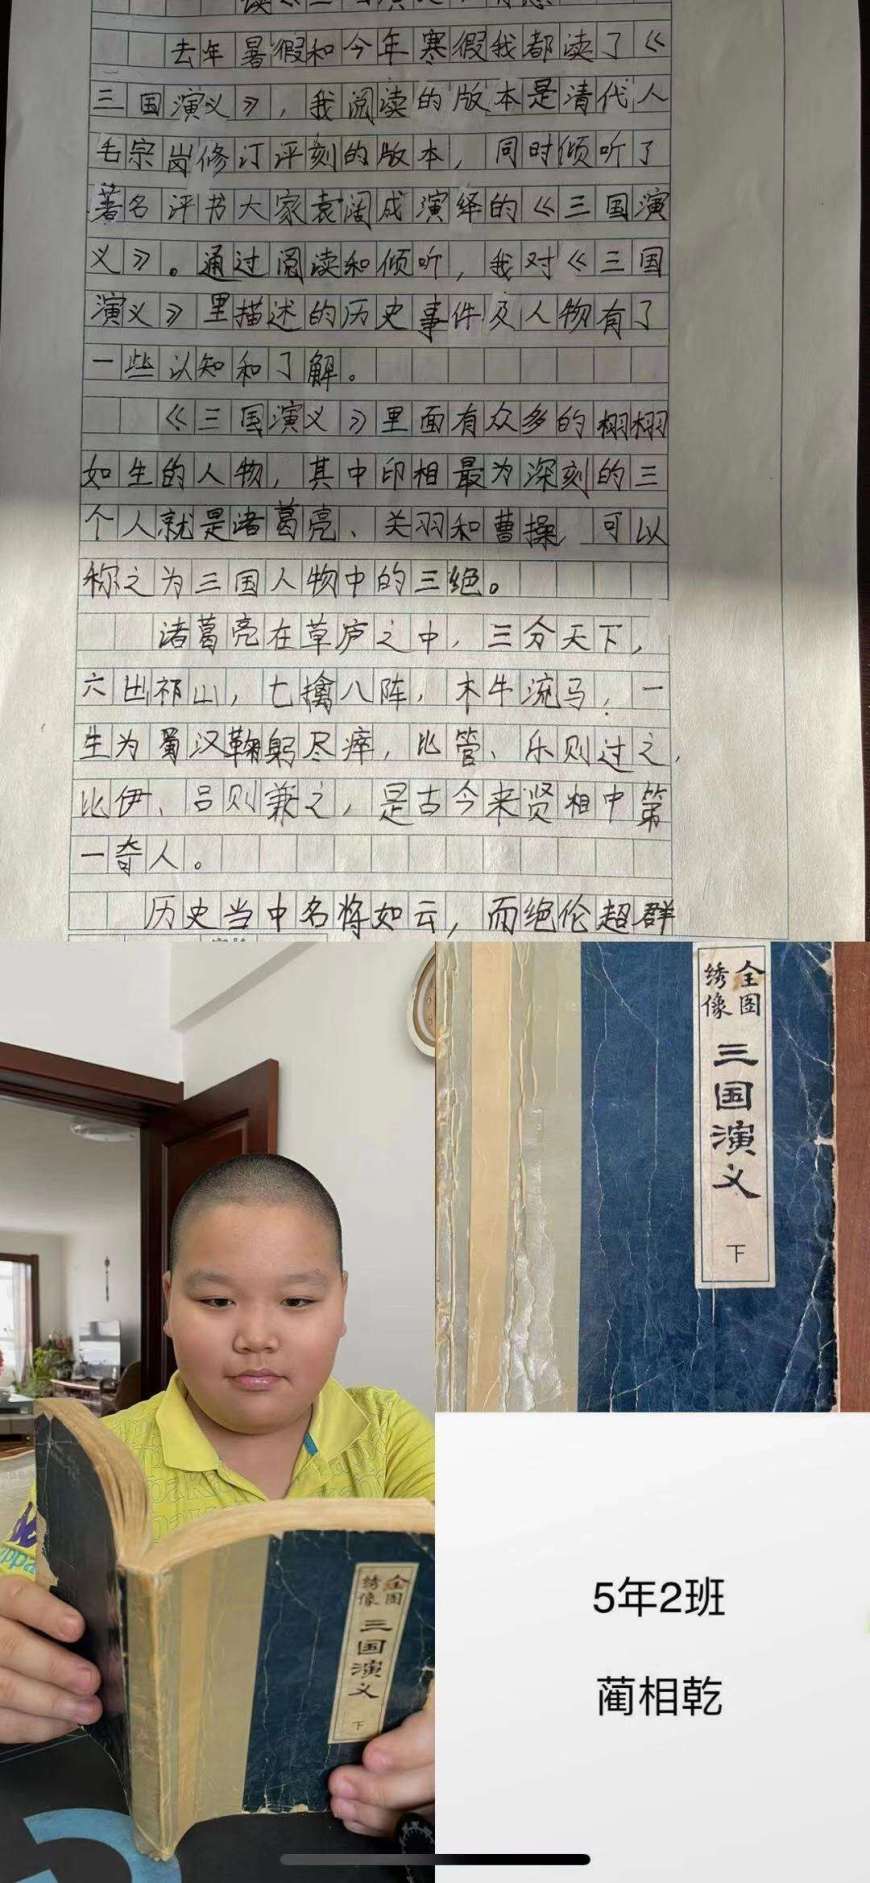 去年暑假和今年寒假我都读了《
三国演义》，我阅读的版本是清代人
毛宗岗修订评刻的版本，同时倾听了
著名评书大家袁阔成演绎的《三国演
义》。通过阅读和倾听，我对《三国
演义》里描述的历史事件及人物有了
一些认知和了解。
《三国演义》里面有众多的栩栩
如生的人物，其中印相最为深刻的三
个人就是诸葛亮、关羽和曹操，可以
称之为三国人物中的三绝。
诸葛亮在草庐之中，三分天下，
六出祁山，七擒八阵，木牛流马，一
生为蜀汉鞠躬尽瘁，比管、乐则过之，
比伊、吕则兼之，是古今来贤相中第
一奇人。
历史当中名将如云，而绝伦超群
全图
绣像
三国演义
下
全图
绣像
三国演义
下
5年2班
蔺相乾